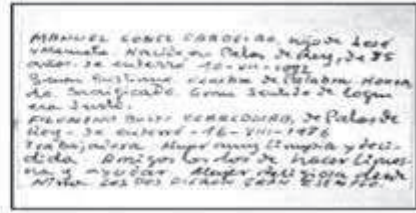 MANUEL GOMEZ CARDEIRO, hijo de José
y Manuela Nació en Palas de Rey, de 85
años. Se enterró 10-VII-1972
Gran Cristiano hombre de Palabra Había
de Sacrificado Gran Sentido de lo que
era Justo.
FILOMENO de Palas de
Rey - Se enterró - 16 - VIII - 1976
Trabajadora Mujer muy limpia y
dida Amigos los dos de hacer limos
na y ayudar Mujer religiosa desde
NIÑA LOS DOS DIERON GRAN EJEMPLO.